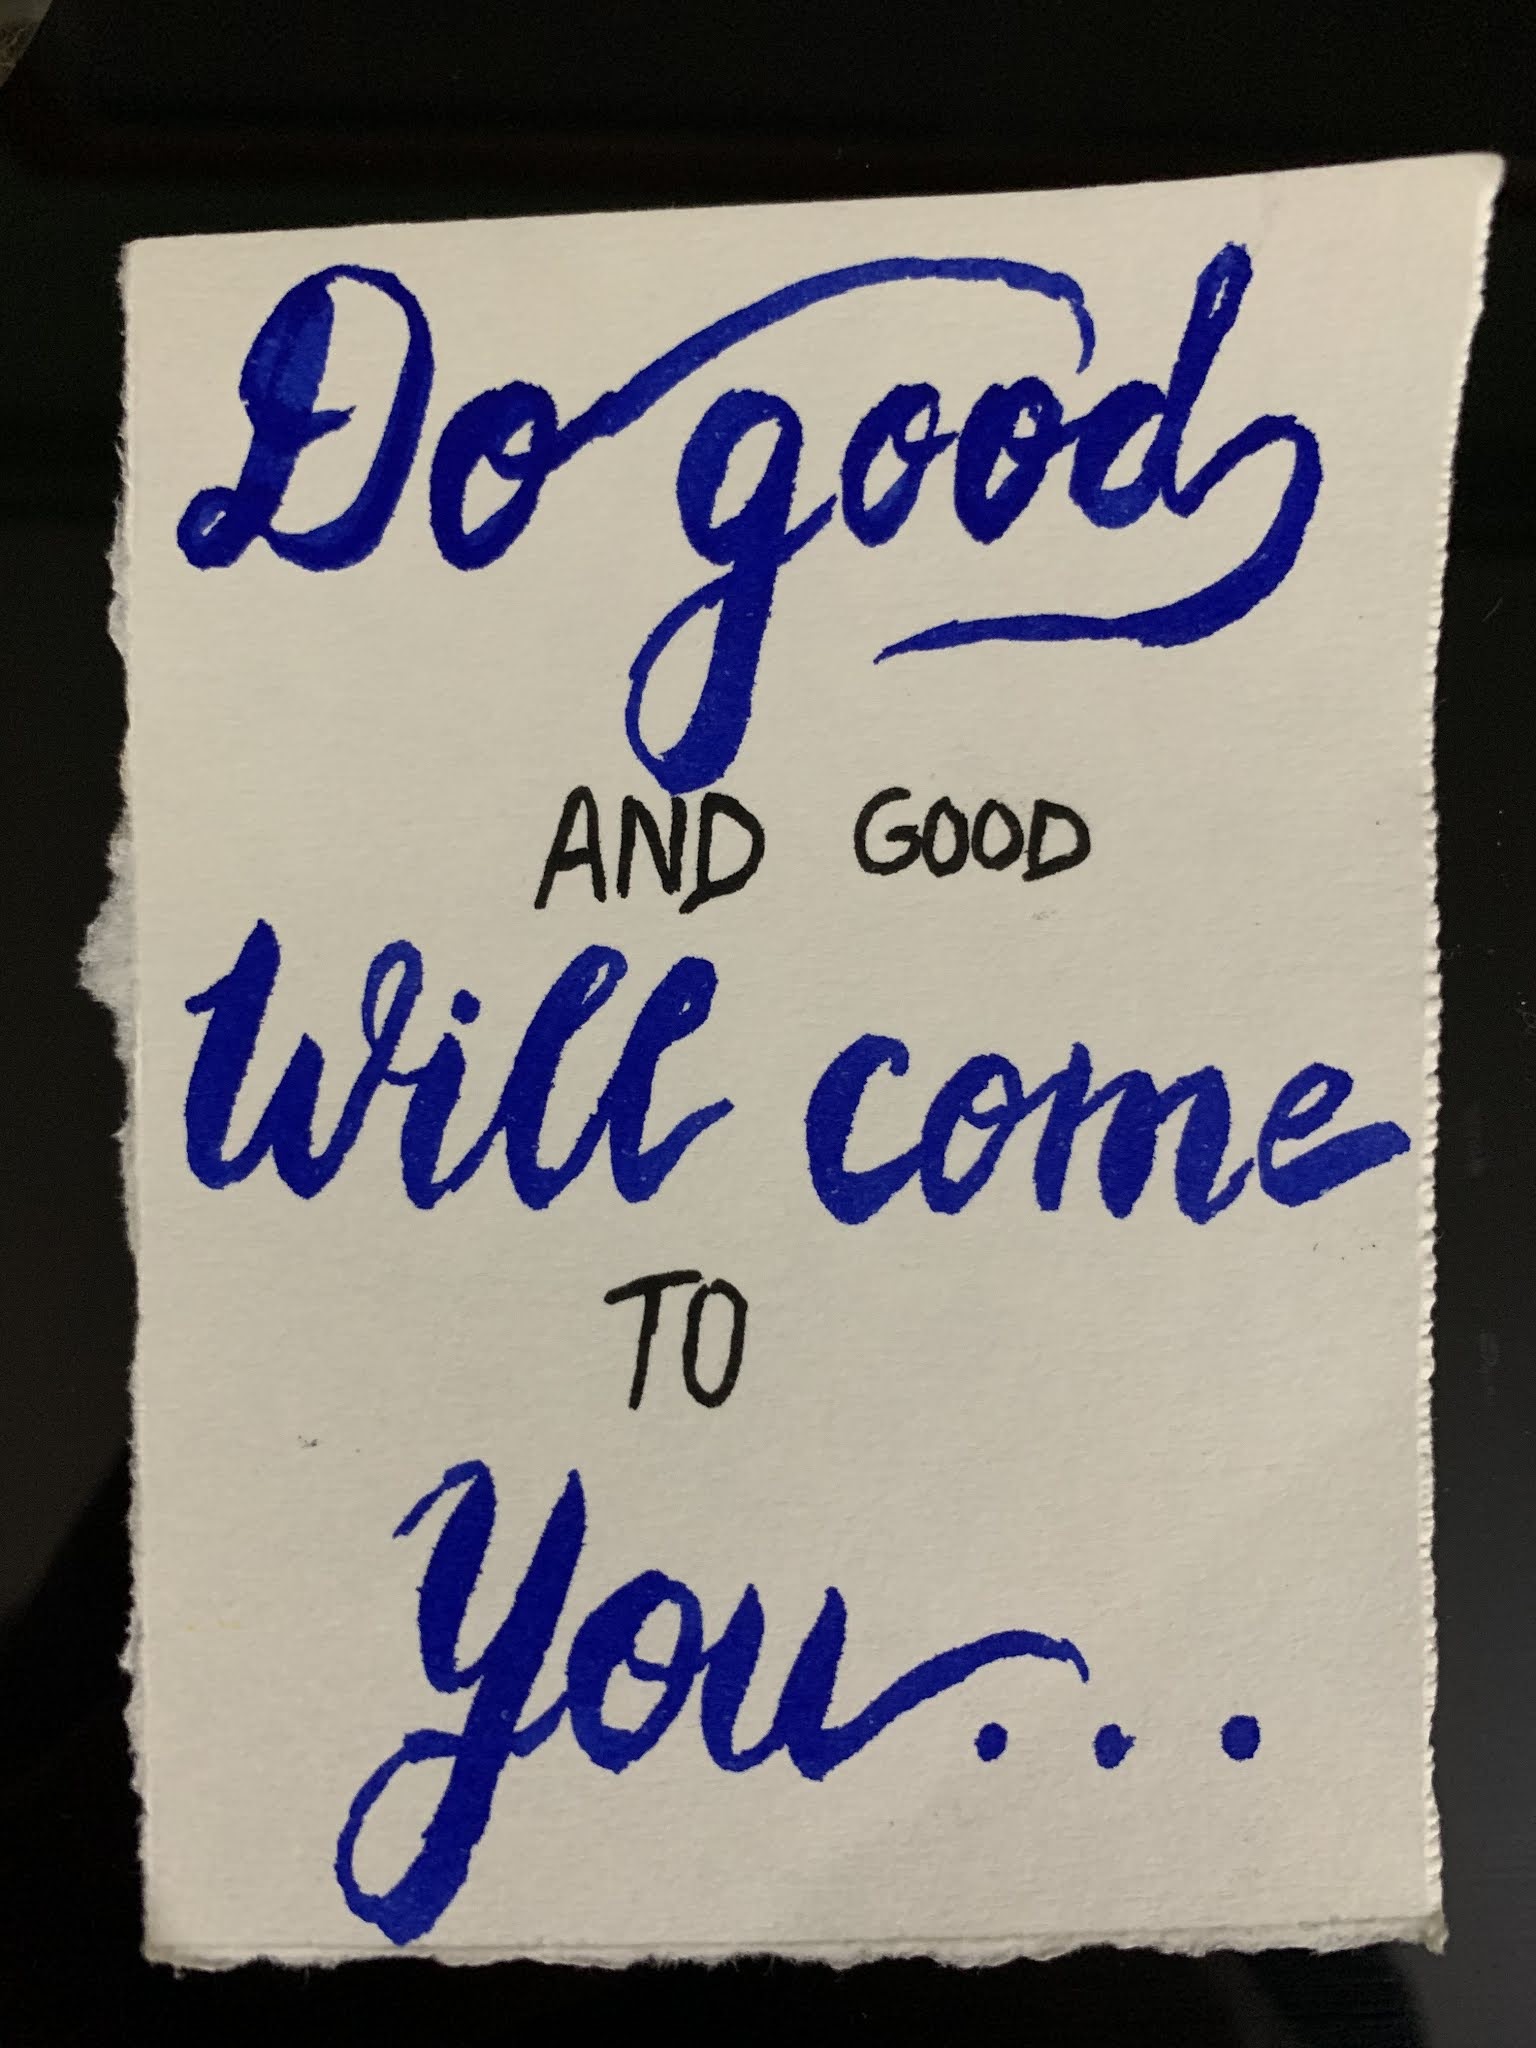 Do good
AND GOOD
Will come
TO
You...